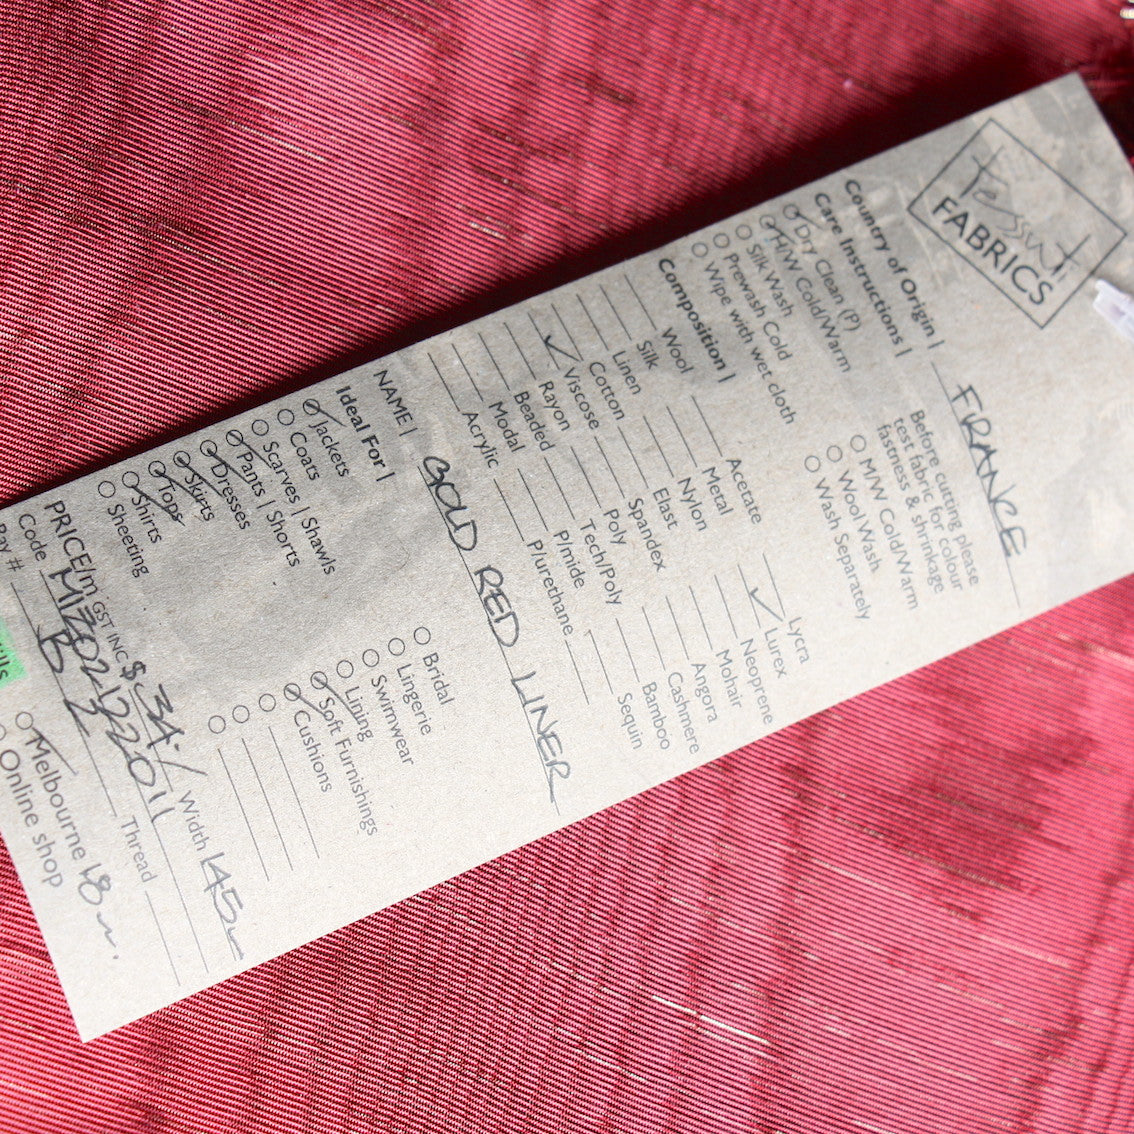 Tessuti
FABRICS
Country of Origin | FRANCE
Care Instructions |
Dry Clean (P)
H/W Cold/Warm
Silk Wash
Prewash Cold
Wipe with wet cloth
Before cutting please
test fabric for colour
fastness & shrinkage
M/W Cold/Warm
Wool Wash
Wash Separately
Composition |
Wool
Silk
Linen
Cotton
✓ Viscose
Rayon
Beaded
Modal
Acrylic
Acetate
Metal
Nylon
Elast
Spandex
Poly
Tech/Poly
P/mide
P/urethane
Lycra
✓ Lurex
Neoprene
Mohair
Angora
Cashmere
Bamboo
Sequin
NAME | GOLD RED LINER
Ideal For |
Jackets
Coats
Scarves | Shawls
Pants | Shorts
Dresses
Skirts
Tops
Shirts
Sheeting
Bridal
Lingerie
Swimwear
Lining
Soft Furnishings
Cushions
PRICE/m GST INC $ 34./ Width 145
Code
Thread
Bay #
Melbourne 18m.
Online shop